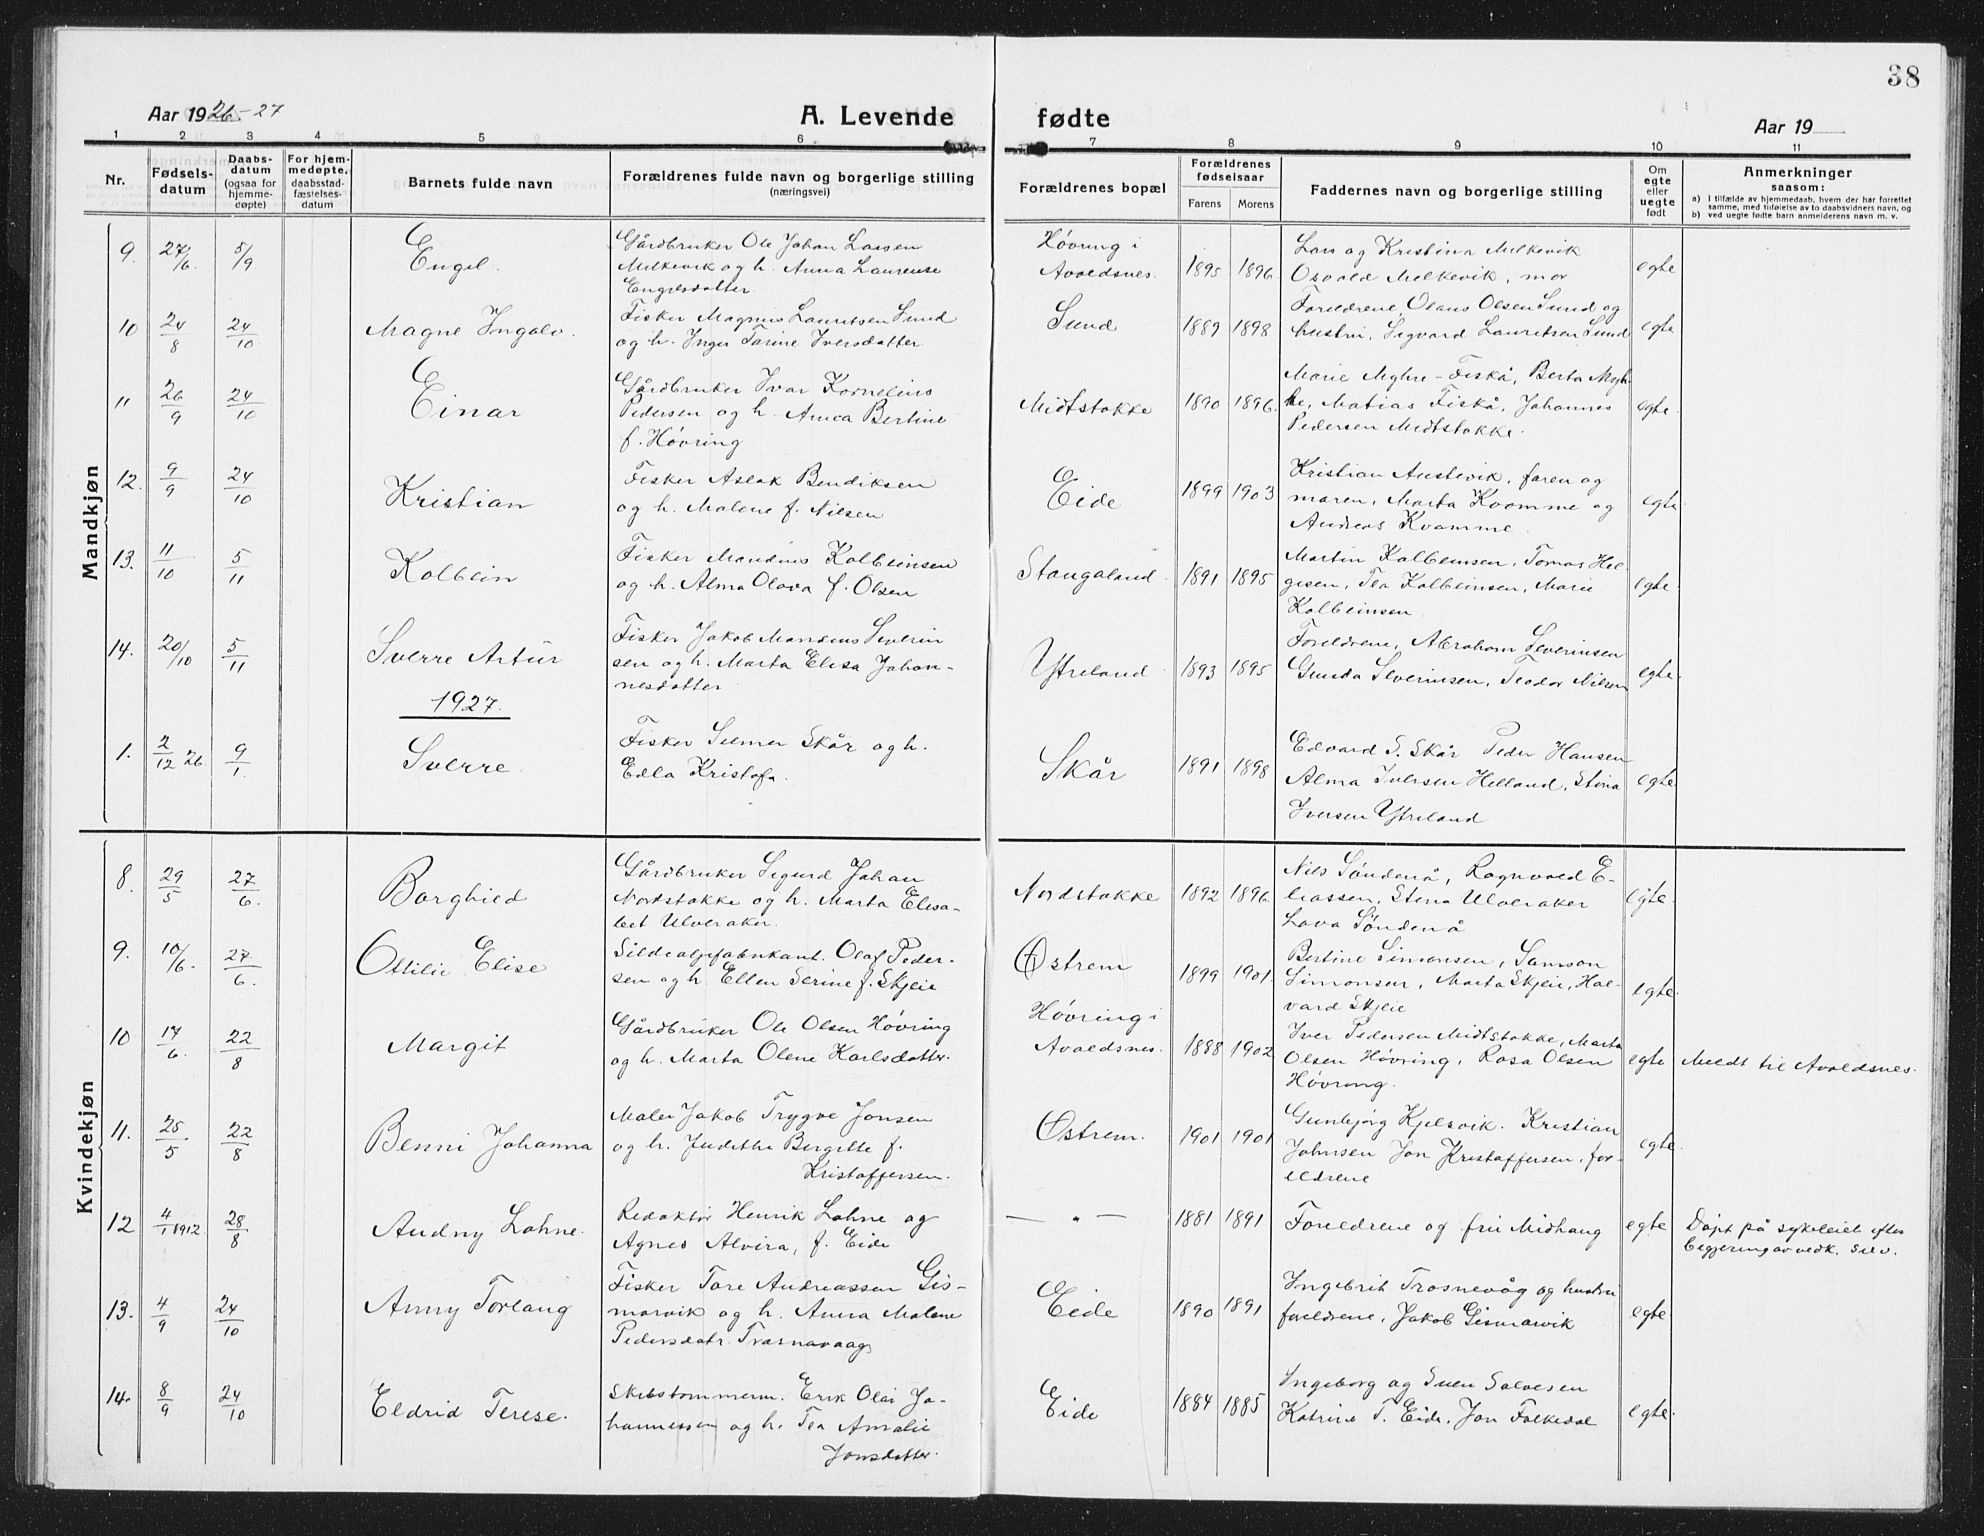 38
Aar 1926-27
A. Levende fødte
Aar 19
1 2 3 4 5 6 7 8 9 10 11
Nr.
Fødsels-
datum
Daabs-
datum
(ogsaa for
hjemme-
døpte)
For hjem-
medøpte,
daabsstad-
fæstelses-
datum
Barnets fulde navn
Forældrenes fulde navn og borgerlige stilling
(næringsvei)
Forældrenes bopæl
Forældrenes
fødselsaar
Farens Morens
Faddernes navn og borgerlige stilling
Om
egte
eller
uegte
født
Anmerkninger
saasom:
a) I tilfælde av hjemmedaab, hvem der har forrettet
samme, med tilføielse av to daabsvidners navn, og
b) ved uegte fødte barn anmelderens navn m. v.
Mandkjøn
9. 27/6. 5/9 Engel.
Gårdbruker Ole Johan Lassen
Milkevik og h. Anna Laurense
Engelsdatter.
Høvring i
Avaldsnes. 1895 1896
Lars og Kristina Milkevik
Osvald Milkevik, mor
egte
10 24/8 24/10 Magne Ingolv.
Fisker Magnus Lauritsen Sund
og h. Inger Tarine Iversdatter
Sund 1889 1898
Foreldrene, Olaus Olsen Sund og
hustru, Sigvard Lauritsen Sund
egte
11 26/9 24/10 Einar
Gårdbruker Ivar Kornelius
Pedersen og h. Anna Bertine
f. Høvring
Midtstokke 1890 1896.
Marie Myhre-Fiskå, Berta Myh-
re, Matias Fiskå, Johannes
Pedersen Midtstokke.
egte.
12. 9/9 24/10 Kristian
Fisker Aslak Bendiksen
og h. Malene f. Nilsen
Eide 1899 1903
Kristian Austevik, faren og
moren, Marta Kvamme og
Andreas Kvamme.
egte
13. 11/10 5/11 Kolbein
Fisker Mandius Kolbeinsen
og h. Alma Olava f. Olsen
Stangaland. 1891 1895
Martin Kolbeinsen, Tomas Hel-
gesen, Tea Kolbeinsen, Marie
Kolbeinsen
egte.
14. 20/10 5/11 Sverre Artur
Fisker Jakob Mandius Severin
sen og h. Marta Elisa Johan-
nesdatter
Ytreland 1893 1895
Foreldrene, Abraham Severinsen
Gunda Severinsen, Teodor Nilsen
egte.
1927.
1. 2/12 26. 9/1. Sverre.
Fisker Selmer Skår og h.
Edla Kristofa.
Skår 1891 1898
Edvard S. Skår Peder Hansen
Alma Iversen Helland, Stina
Iversen Ytreland
egte
Kvindekjøn
8. 29/5 27/6. Borghild
Gårdbruker Sigurd Johan
Nordstokke og h. Marta Elisa-
bet Ulveraker.
Nordstokke 1892 1896.
Nils Søndenå, Ragnvald E-
liassen, Stina Ulveraker
Lava Søndenå
egte.
9. 10/6. 27/6. Ottilie Elise
Sildoljefabrikant. Olaf Peder-
sen og h. Ellen Serine f. Skjeie
Østrem 1899 1901.
Bertine Simonsen, Samson
Simonsen, Marta Skjeie, Hal-
vard Skjeie
egte.
10 17/6. 22/8 Margit
Gårdbruker Ole Olsen Høvring
og h. Marta Olene Karlsdatter.
Høvring i
Avaldsnes. 1888 1902
Iver Pedersen Midtstokke, Marta
Olsen Høvring, Rasa Olsen
Høvring.
egte Meldt til Avaldsnes.
11. 25/5 22/8 Benni Johanna
Maler Jakob Trygve Jonsen
og h. Judithe Bergitte f.
Kristoffersen.
Østrem. 1901 1901
Gunbjørg Kjelsvik. Kristian
Johnsen Jon Kristoffersen, for-
eldrene
egte.
12 4/1 1912 28/8 Audny Lohne.
Redaktør Henrik Lohne og
Agnes Alvira, f. Eide
— " — 1881 1891 Foreldrene og fru Midhaug egte
Døpt på sykeleiet efter
begjering av vedk. selv.
13. 4/9 24/10 Anny Torlaug
Fisker Tore Andreassen Gis-
marvik og h. Anna Malene
Pedersdatr. Trosnavaag
Eide 1890 1891
Ingebrit Trosnevåg og hustru
foreldrene, Jakob Gismarvik
egte.
14. 8/9 24/10 Eldrid Terese.
Skibstømmerm. Erik Olai Jo-
hannessen og h. Tea Amalie
Jonsdatter.
Eide 1884 1885
Ingeborg og Sven Salvesen
Katrine T. Eide, Jon Folkedal
egte.